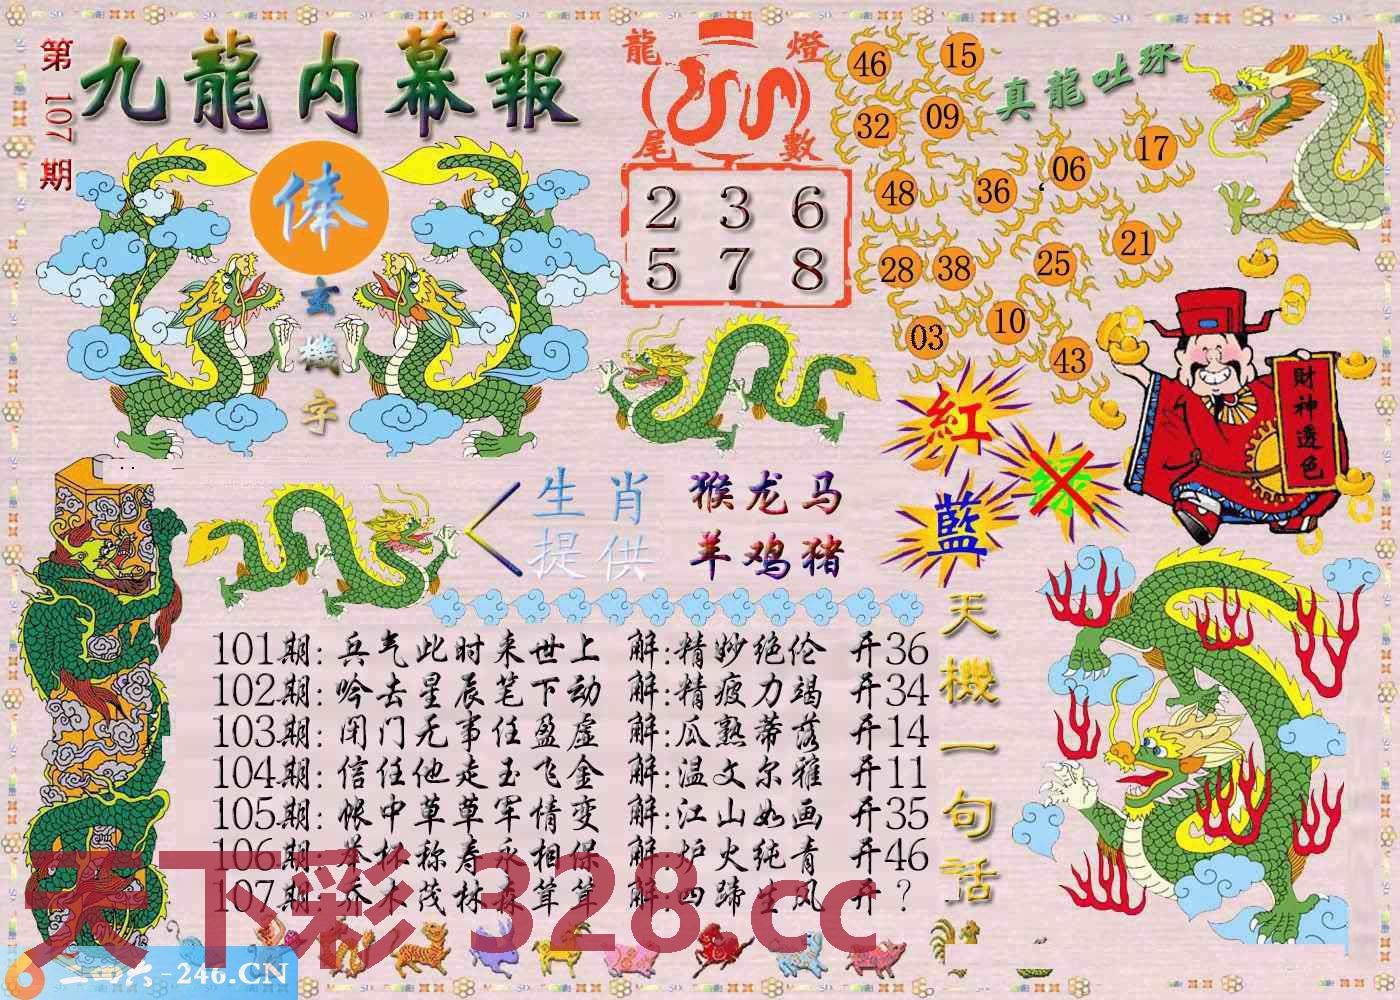 第107期
九龍内幕報
俸
玄機字
龍燈尾數
2 3 6
5 7 8
真龍吐珠
46 15
32 09
48 36 06 17
28 38 25 21
03 10 43
財神透色
紅
绿
藍
生肖提供
猴龙马
羊鸡猪
天機一句話
101期:兵气此时来世上 解:精妙绝伦 开36
102期:吟去星辰笔下动 解:精疲力竭 开34
103期:闭门无事任盈虚 解:瓜熟蒂落 开14
104期:信任他走玉飞金 解:温文尔雅 开11
105期:帐中草草军情变 解:江山如画 开35
106期:举杯称寿永相保 解:炉火纯青 开46
107期:乔木茂林森茸茸 解:四蹄生风 开?
天下彩 328.cc
二四六-246.CN